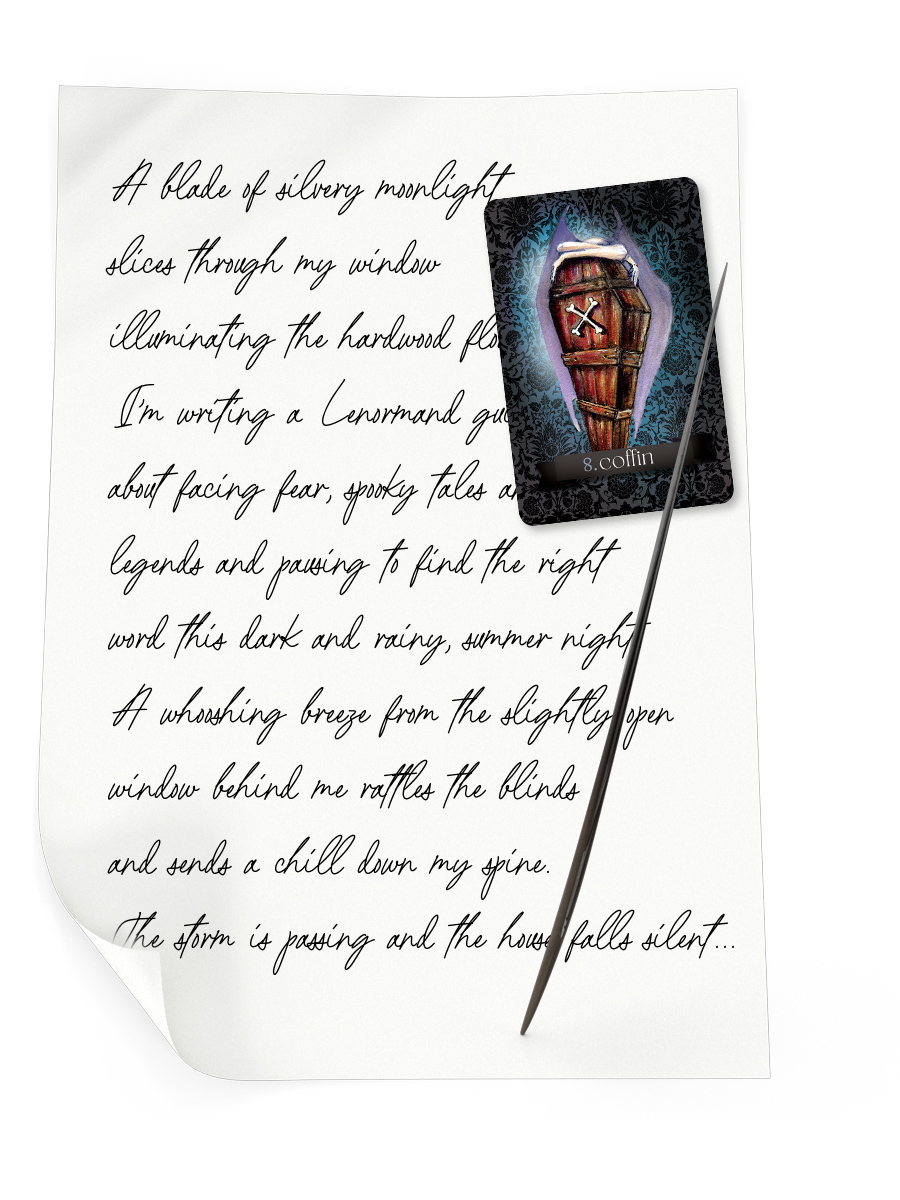 A blade of silvery moonlight
slices through my window
illuminating the hardwood flo
I'm writing a Lenormand gui
about facing fear, spooky tales an
legends and pausing to find the right
word this dark and rainy, summer night
A whooshing breeze from the slightly open
window behind me rattles the blinds
and sends a chill down my spine.
The storm is passing and the house falls silent...
8.coffin